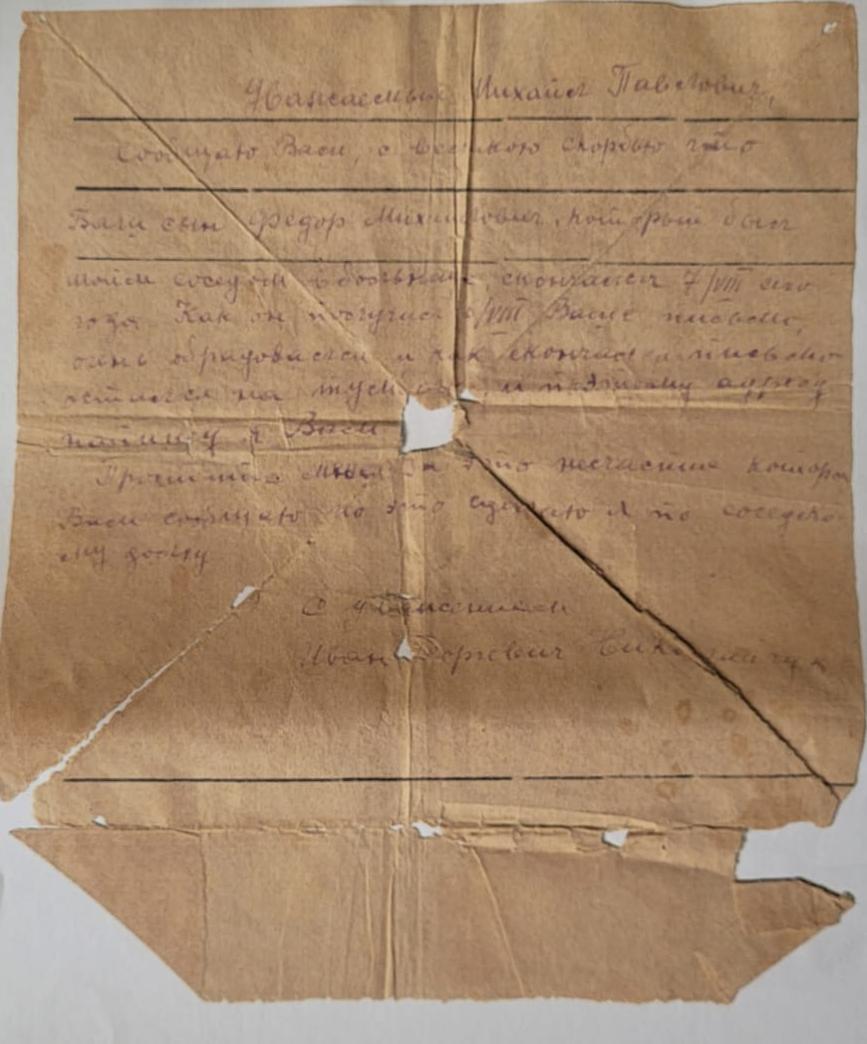 Уважаемый Михаил Павлович,
Сообщаю Вам, с великою скорбью что
Ваш сын Федор Михайлович, который был
моим соседом в больнице, скончался 7/VIII сего
года. Как он получил /VIII Ваше письмо,
очень обрадовался и как скончался письмо
остался на и по этому адресу
напишу я Вам
Простите меня за это несчастие которое
Вам сообщаю но это сделаю я по соседско-
му долгу
С уважением
Иван